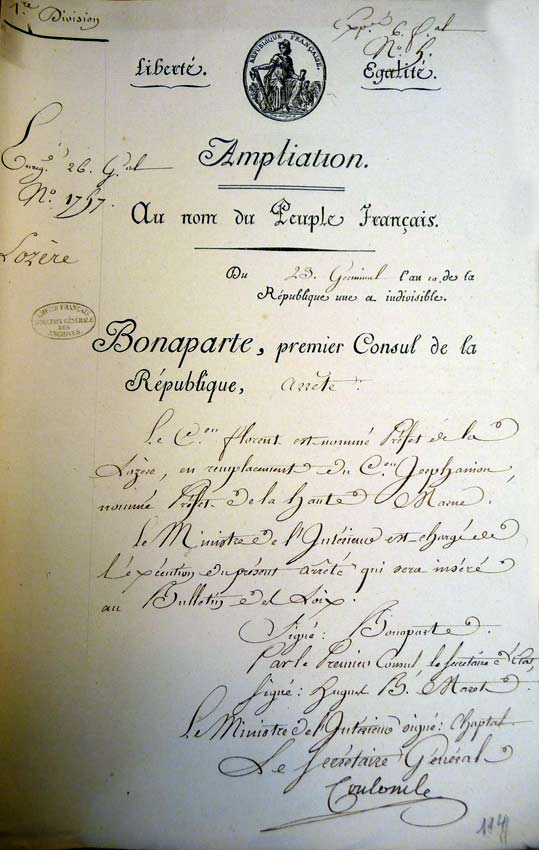 1.re Division
Exp.é 6. f.al
N.o 5.
RÉPUBLIQUE FRANÇAISE.
Liberté.
Egalité.
Ampliation.
Enreg.é 26. G.al
N.o 1757.
Au nom du Peuple Français.
Lozère
Du 23 Germinal l'an 10 de la
République une et indivisible.
ARCHIVES
Bonaparte, premier Consul de la
République, arrête:
Le C.en florent est nommé Préfet de la
Lozère, en remplacement du C.en Jerphanion,
nommé Préfet de la haute Marne.
Le Ministre de l'Intérieur est chargé de
l'exécution du présent arrêté qui sera inséré
au Bulletin des Loix.
Signé: Bonaparte.
Par le Premier Consul, le secrétaire d'Etat,
signé: hugues B. Maret
Le Ministre de l'Intérieur signé: Chaptal
Le Secrétaire Général
Coulomb